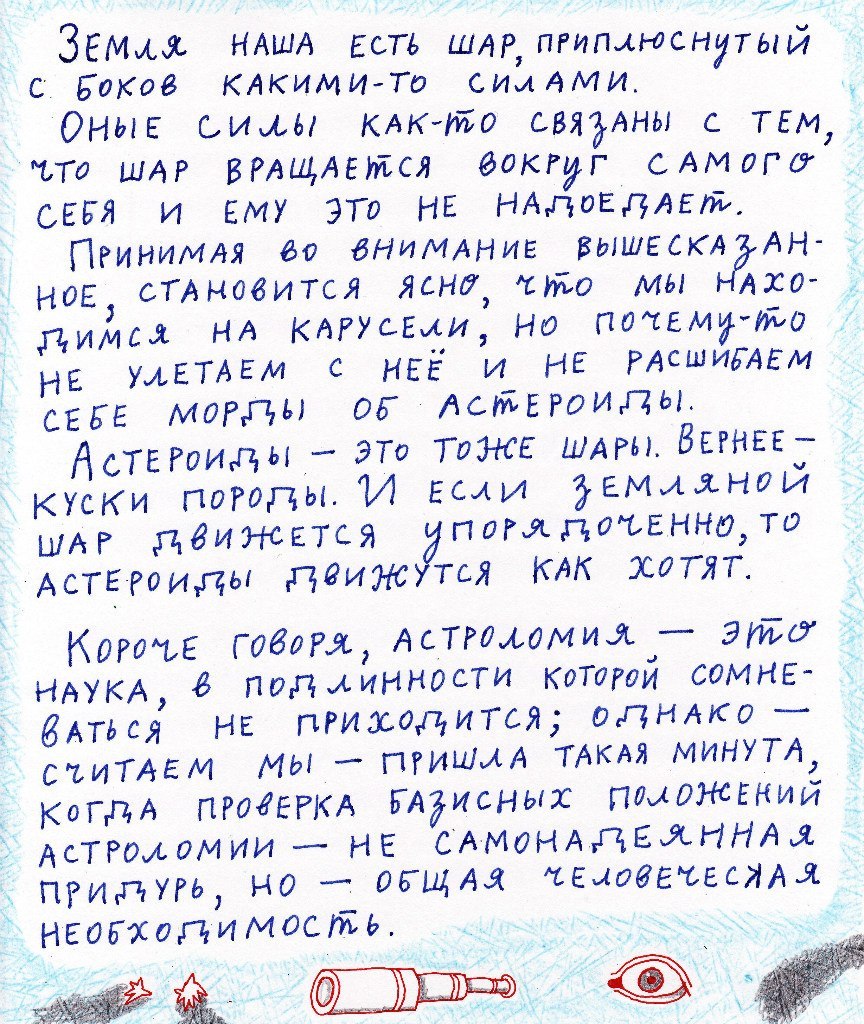 Земля наша есть шар, приплюснутый
с боков какими-то силами.
Оные силы как-то связаны с тем,
что шар вращается вокруг самого
себя и ему это не надоедает.
Принимая во внимание вышесказан-
ное, становится ясно, что мы нахо-
димся на карусели, но почему-то
не улетаем с неё и не расшибаем
себе морды об астероиды.
Астероиды — это тоже шары. Вернее —
куски породы. И если земляной
шар движется упорядоченно, то
астероиды движутся как хотят.
Короче говоря, астроломия — это
наука, в подлинности которой сомне-
ваться не приходится; однако —
считаем мы — пришла такая минута,
когда проверка базисных положений
астроломии — не самонадеянная
придурь, но — общая человеческая
необходимость.